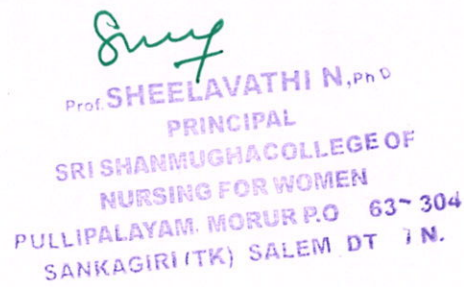 Prof. SHEELAVATHI N, Ph D
PRINCIPAL
SRI SHANMUGHACOLLEGE OF
NURSING FOR WOMEN
PULLIPALAYAM. MORUR P.O 63~ 304
SANKAGIRI (TK) SALEM DT N.